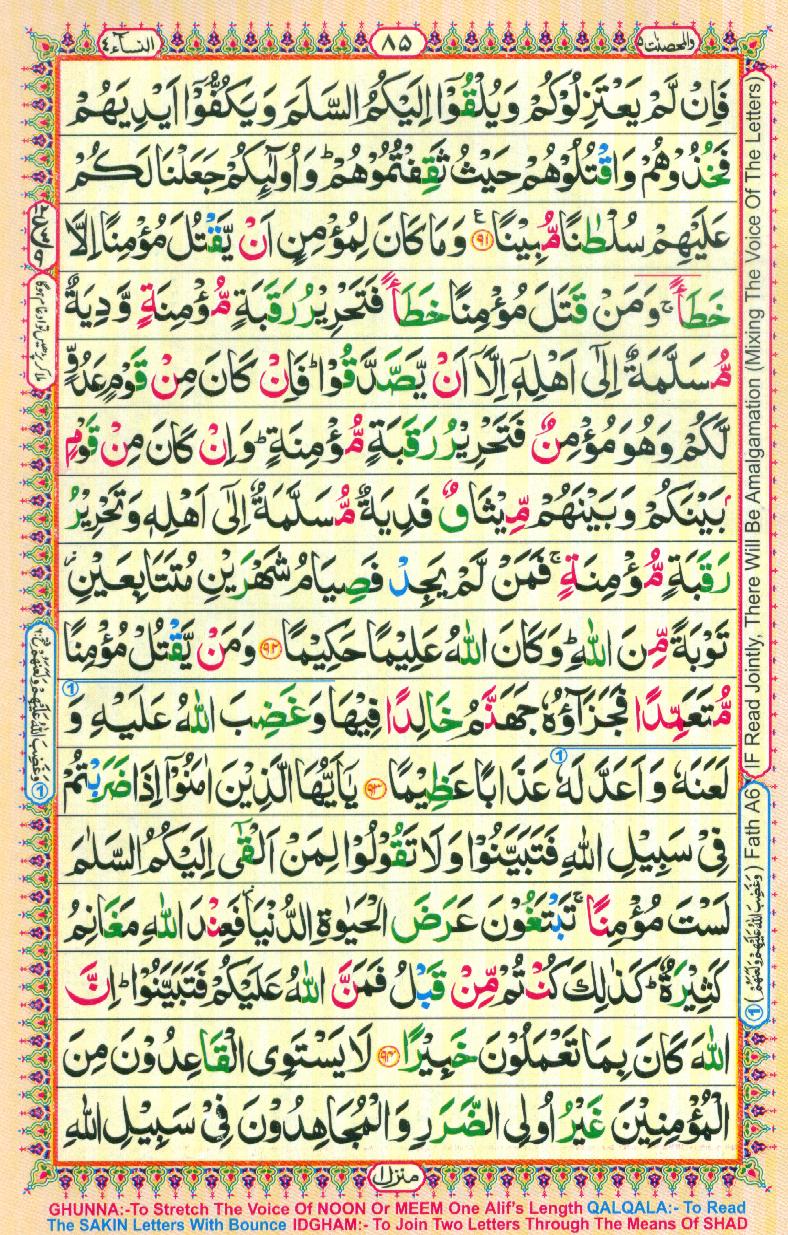 والمحصنت ٥
٨٥
النسآء ٤
فَاِنْ لَّمْ يَعْتَزِلُوْكُمْ وَيُلْقُوْۤا اِلَيْكُمُ السَّلَمَ وَيَكُفُّوْۤا اَيْدِيَهُمْ
فَخُذُوْهُمْ وَاقْتُلُوْهُمْ حَيْثُ ثَقِفْتُمُوْهُمْ ؕ وَاُولٰٓئِكُمْ جَعَلْنَا لَكُمْ
عَلَيْهِمْ سُلْطٰنًا مُّبِيْنًا ﴿۹۱﴾ ع وَمَا كَانَ لِمُؤْمِنٍ اَنْ يَّقْتُلَ مُؤْمِنًا اِلَّا
خَطَـًٔا ۚ وَمَنْ قَتَلَ مُؤْمِنًا خَطَـًٔا فَتَحْرِيْرُ رَقَبَةٍ مُّؤْمِنَةٍ وَّدِيَةٌ
مُّسَلَّمَةٌ اِلٰٓى اَهْلِهٖۤ اِلَّاۤ اَنْ يَّصَّدَّقُوْا ؕ فَاِنْ كَانَ مِنْ قَوْمٍ عَدُوٍّ
لَّكُمْ وَهُوَ مُؤْمِنٌ فَتَحْرِيْرُ رَقَبَةٍ مُّؤْمِنَةٍ ؕ وَاِنْ كَانَ مِنْ قَوْمٍۭ
بَيْنَكُمْ وَبَيْنَهُمْ مِّيْثَاقٌ فَدِيَةٌ مُّسَلَّمَةٌ اِلٰٓى اَهْلِهٖ وَتَحْرِيْرُ
رَقَبَةٍ مُّؤْمِنَةٍ ۚ فَمَنْ لَّمْ يَجِدْ فَصِيَامُ شَهْرَيْنِ مُتَتَابِعَيْنِ ؗ
تَوْبَةً مِّنَ اللّٰهِ ؕ وَكَانَ اللّٰهُ عَلِيْمًا حَكِيْمًا ﴿۹۲﴾ وَمَنْ يَّقْتُلْ مُؤْمِنًا
مُّتَعَمِّدًا فَجَزَآؤُهٗ جَهَنَّمُ خَالِدًا فِيْهَا وَغَضِبَ اللّٰهُ عَلَيْهِ وَ
لَعَنَهٗ وَاَعَدَّ لَهٗ عَذَابًا عَظِيْمًا ﴿۹۳﴾ يٰۤاَيُّهَا الَّذِيْنَ اٰمَنُوْۤا اِذَا ضَرَبْتُمْ
فِيْ سَبِيْلِ اللّٰهِ فَتَبَيَّنُوْا وَلَا تَقُوْلُوْا لِمَنْ اَلْقٰۤى اِلَيْكُمُ السَّلٰمَ
لَسْتَ مُؤْمِنًا ۚ تَبْتَغُوْنَ عَرَضَ الْحَيٰوةِ الدُّنْيَا ؗ فَعِنْدَ اللّٰهِ مَغَانِمُ
كَثِيْرَةٌ ؕ كَذٰلِكَ كُنْتُمْ مِّنْ قَبْلُ فَمَنَّ اللّٰهُ عَلَيْكُمْ فَتَبَيَّنُوْا ؕ اِنَّ
اللّٰهَ كَانَ بِمَا تَعْمَلُوْنَ خَبِيْرًا ﴿۹۴﴾ لَا يَسْتَوِي الْقَاعِدُوْنَ مِنَ
الْمُؤْمِنِيْنَ غَيْرُ اُولِي الضَّرَرِ وَالْمُجَاهِدُوْنَ فِيْ سَبِيْلِ اللّٰهِ
منزل ١
IF Read Jointly, There Will Be Amalgamation (Mixing The Voice Of The Letters)
① (وَغَضِبَ اللّٰهُ عَلَيْهِمْ وَلَعَنَهُمْ) Fath A6
① وَغَضِبَ اللّٰهُ عَلَيْهِمْ وَلَعَنَهُمْ
GHUNNA:-To Stretch The Voice Of NOON Or MEEM One Alif's Length QALQALA:- To Read
The SAKIN Letters With Bounce IDGHAM:- To Join Two Letters Through The Means Of SHAD